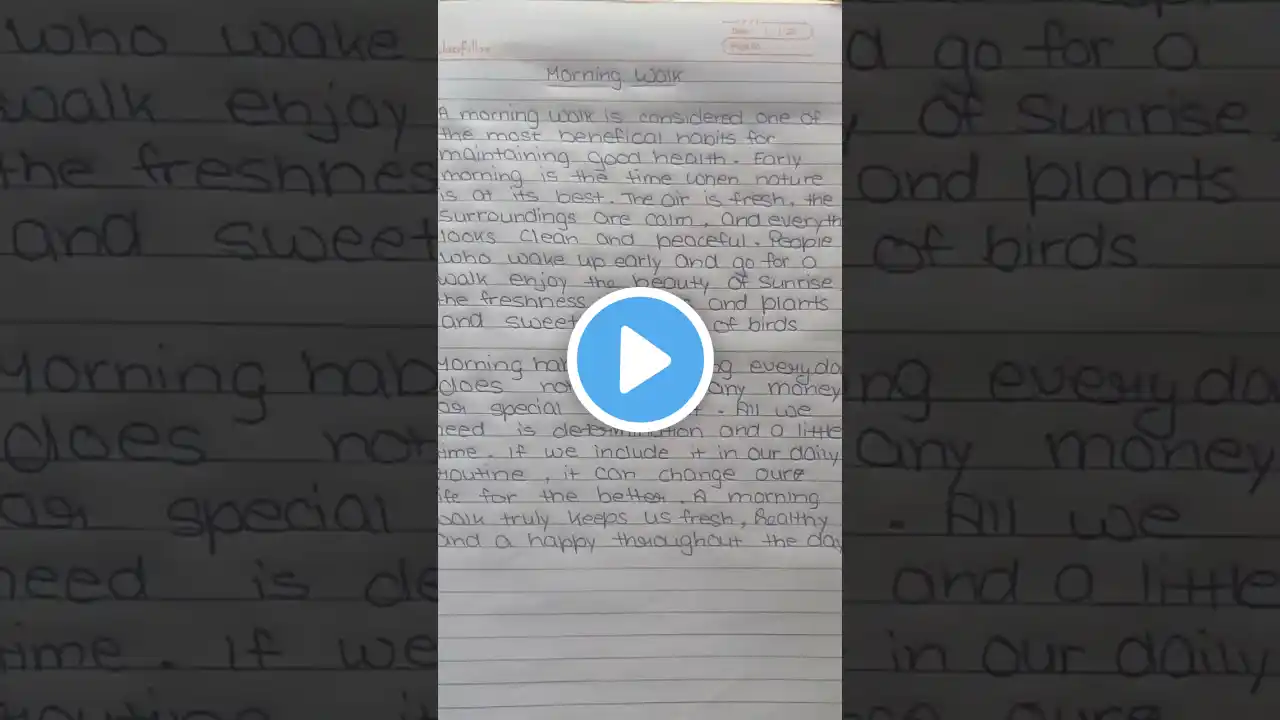 Classfellow
Date
Page No.
Morning Walk
A morning walk is considered one of
the most benefical habits for
maintaining good health. Early
morning is the time when nature
is at its best. The air is fresh, the
surroundings are calm, and everyth
looks clean and peaceful. People
who wake up early and go for a
walk enjoy the beauty of sunrise
the freshness and plants
and sweet of birds
Morning everyda
does any money
or special . All we
need is determination and a little
time. If we include it in our daily
routine, it can change oure
life for the better. A morning
walk truly keeps us fresh, Healthy
and a happy thoroughout the day